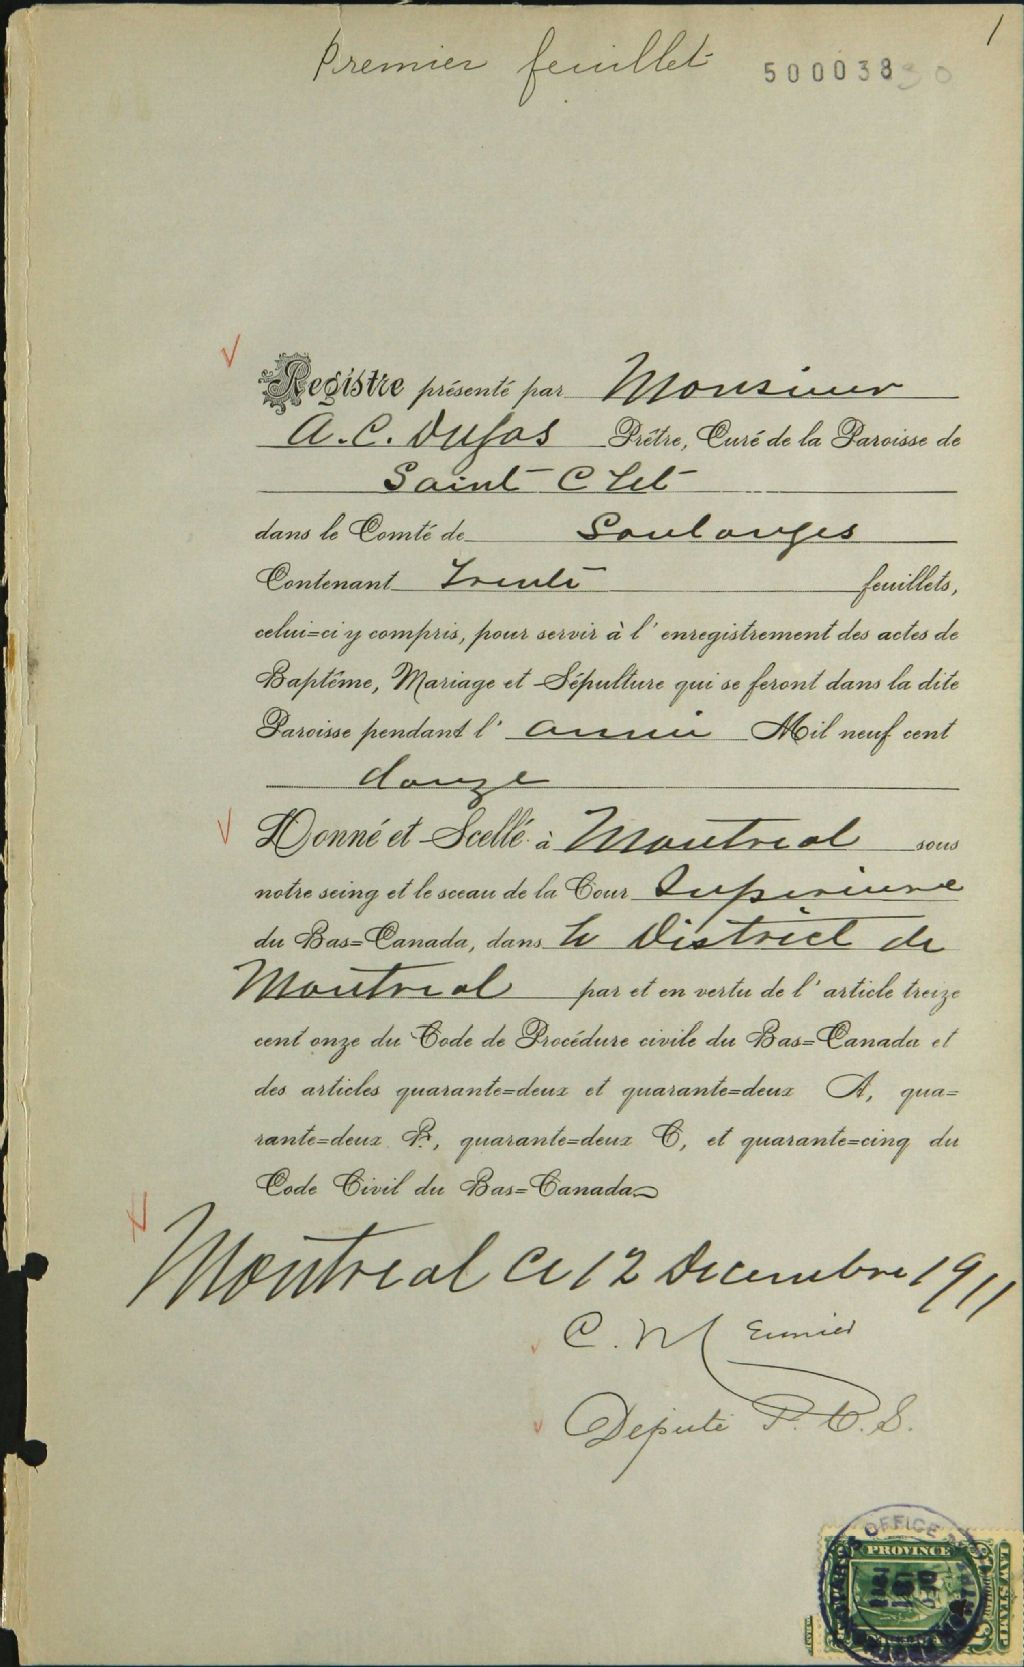 1
Premier feuillet
500038
Registre présenté par Monsieur
A. C. Dufas Prêtre, Curé de la Paroisse de
Saint Clet
dans le Comté de Soulanges
Contenant Trente feuillets,
celui=ci y compris, pour servir à l'enregistrement des actes de
Baptême, Mariage et Sépulture qui se feront dans la dite
Paroisse pendant l'année Mil neuf cent
douze
Donné et Scellé à Montreal sous
notre seing et le sceau de la Cour Superieure
du Bas=Canada, dans le District de
Montreal par et en vertu de l'article treize
cent onze du Code de Procédure civile du Bas=Canada et
des articles quarante=deux et quarante=deux A, qua=
rante=deux B, quarante=deux C, et quarante=cinq du
Code Civil du Bas=Canada
Montreal Ce 12 Decembre 1911
C. Meunier
Député P. C. S.
OFFICE
PROVINCE
LAW STAMP